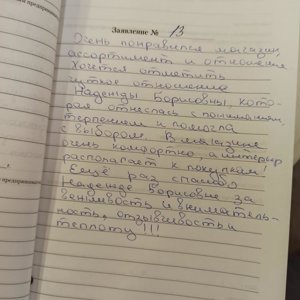 Заявление № 13
Очень понравился магазин,
ассортимент и отношение
Хочется отметить
чуткое отношение
Надежды Борисовны, кото-
рая отнеслась с пониманием,
терпением и помогла
с выбором. В магазине
очень комфортно, а интерьер
располагает к покупкам!
Ещё раз спасибо
Надежде Борисовне за
вежливость и вниматель-
ность, отзывчивость и
теплоту!!!